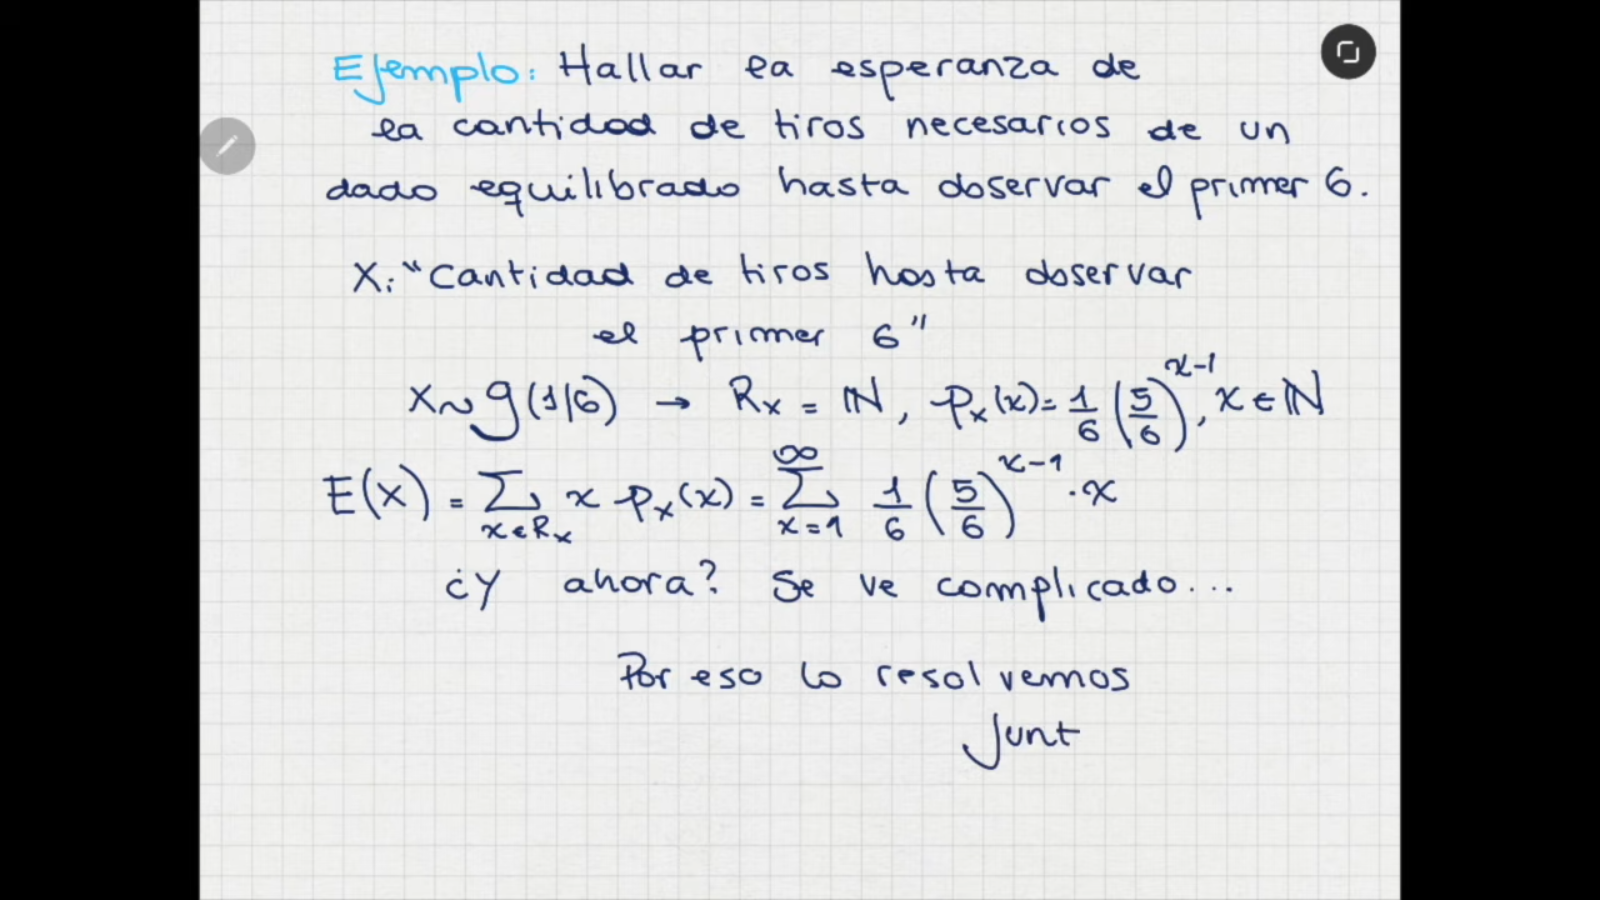 Ejemplo: Hallar la esperanza de
la cantidad de tiros necesarios de un
dado equilibrado hasta observar el primer 6.
X: "Cantidad de tiros hasta observar
el primer 6"
X ~ g(1/6) → R_X = ℕ, p_X(x) = 1/6 (5/6)^{x-1}, x ∈ ℕ
E(X) = ∑_{x∈R_X} x p_X(x) = ∑_{x=1}^{∞} 1/6 (5/6)^{x-1} · x
¿Y ahora? Se ve complicado...
Por eso lo resolvemos
Junt